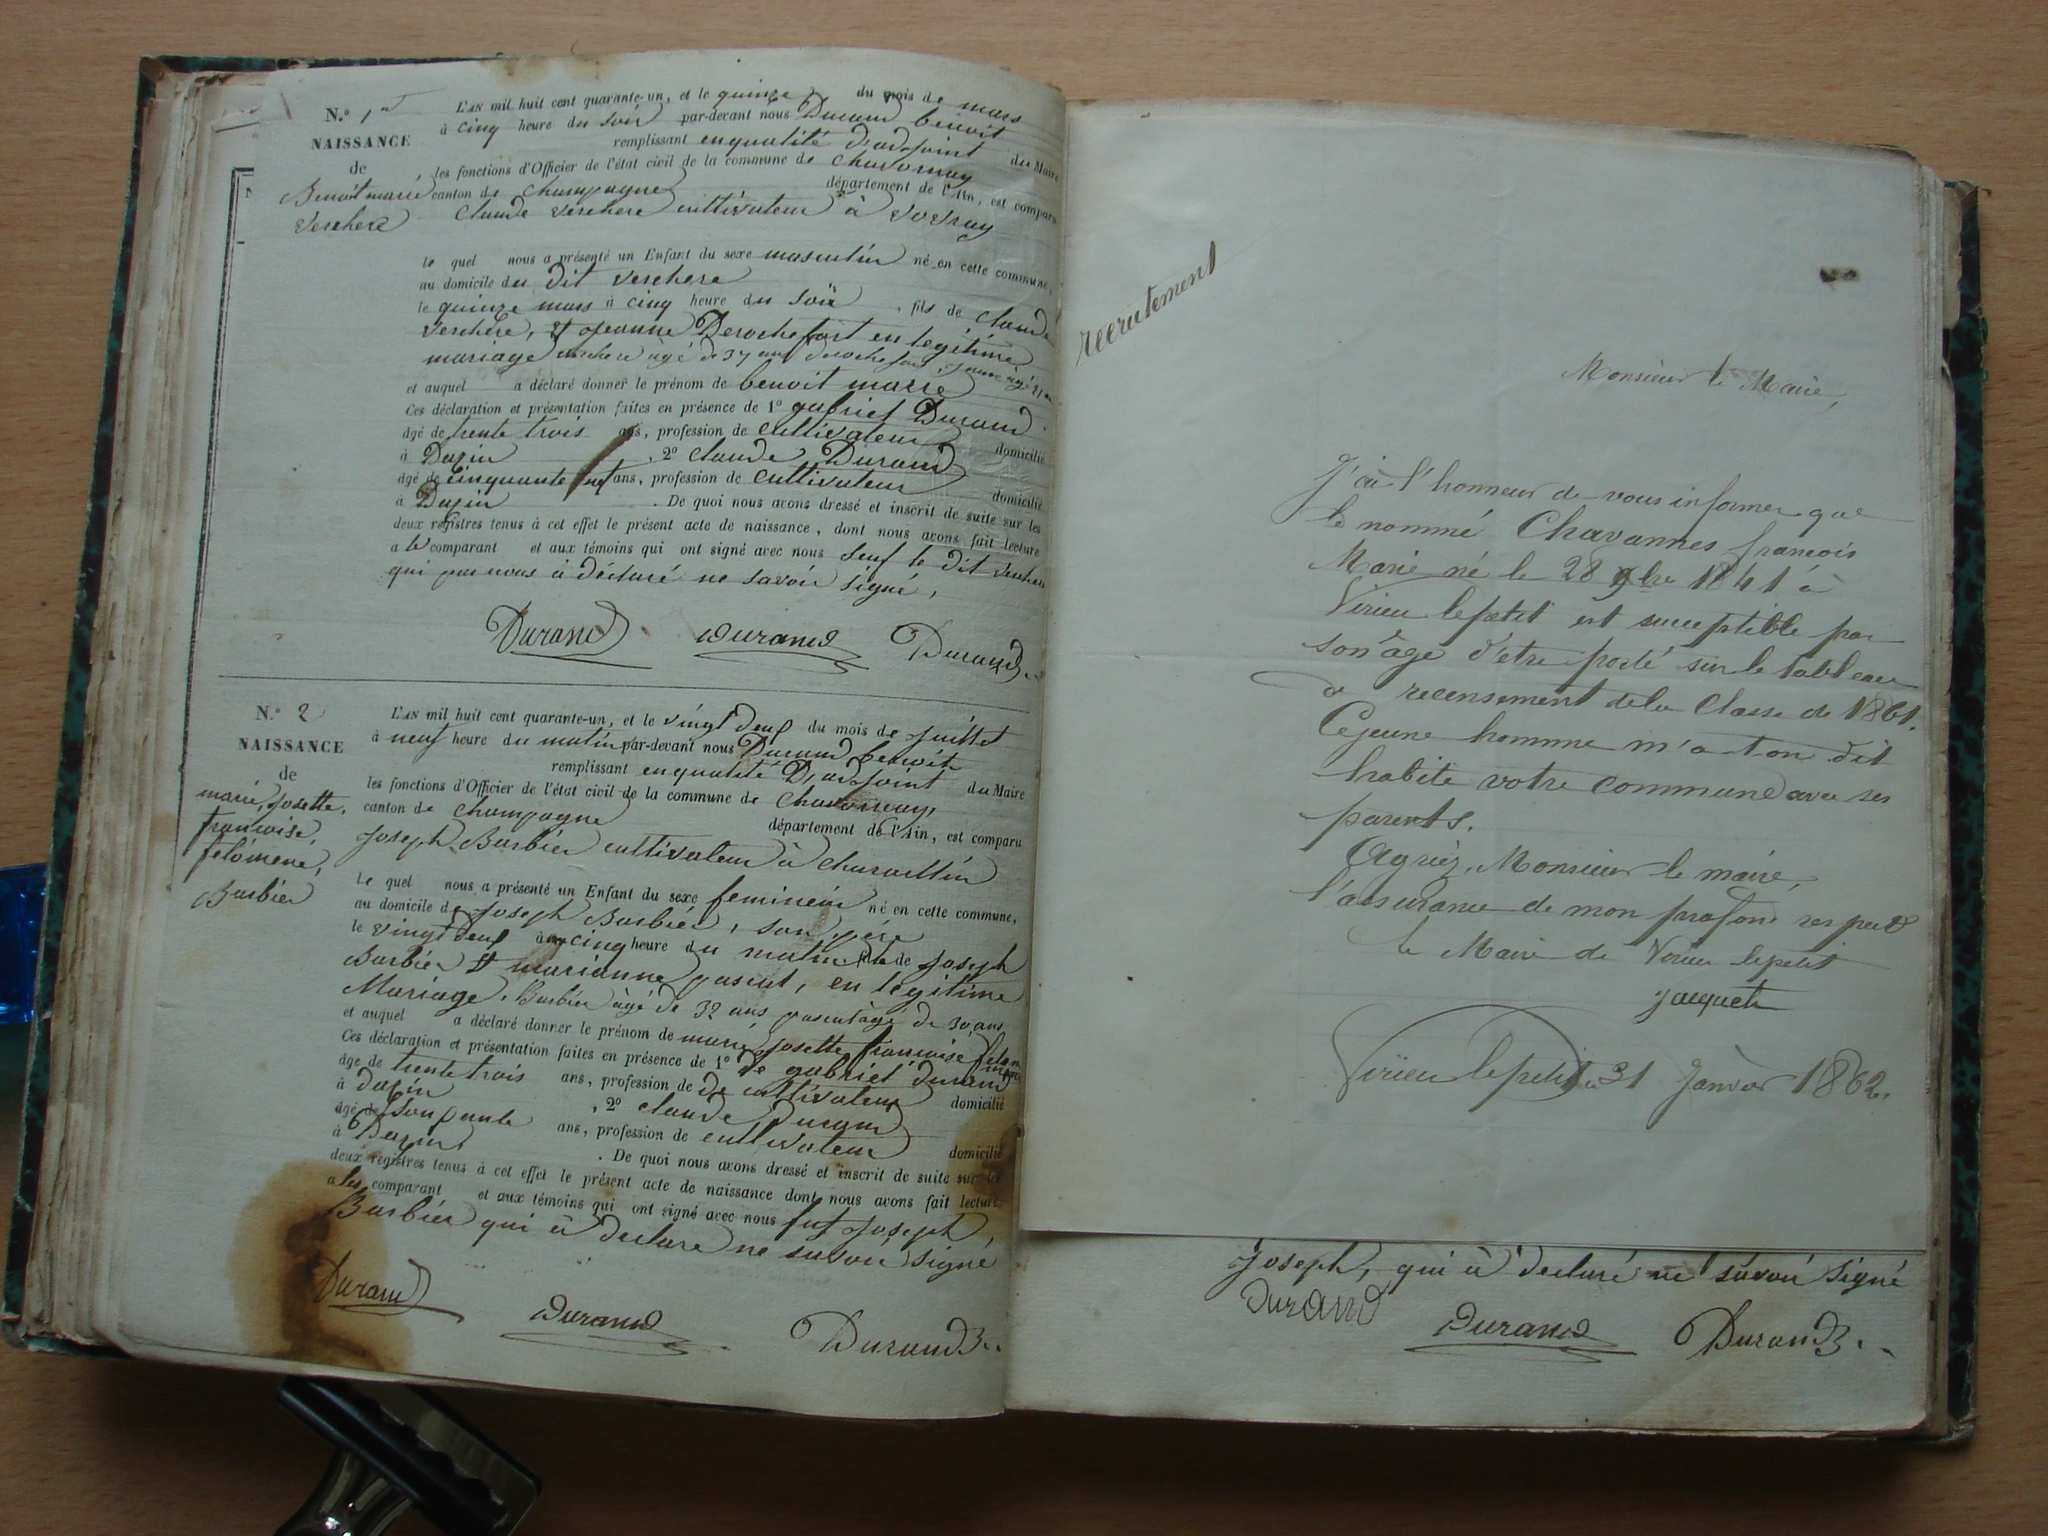 N.° 1er
NAISSANCE
de
Benoit marie
Verchere
L'AN mil huit cent quarante-un, et le quinze du mois de mars
à cinq heure du soir par-devant nous Durand benoit
remplissant enqualité d'adjoint du Maire
les fonctions d'Officier de l'état civil de la commune de Chavornay
canton de Champagne département de l'Ain, est comparu
Claude Verchere cultivateur à Vovray
le quel nous a présenté un Enfant du sexe masculin né en cette commune,
au domicile du dit Verchere
le quinze mars à cinq heure du soir, fils de Claude
Verchere, et Jeanne Derochefort en legitime
mariage verchere agé de 37 ans derochefort, jeanne agé
et auquel a déclaré donner le prénom de benoit marie
Ces déclaration et présentation faites en présence de 1° gabriel Durand
âgé de trente trois ans, profession de cultivateur domicilié
à Dazin, 2° claude Durand
âgé de cinquante ans, profession de cultivateur domicilié
à Dazin. De quoi nous avons dressé et inscrit de suite sur les
deux registres tenus à cet effet le présent acte de naissance, dont nous avons fait lecture
a le comparant et aux témoins qui ont signé avec nous seuf le dit verchere
qui par nous à déclaré ne savoir signé,
Durand Durand Durand B.
N.° 2
NAISSANCE
de
marie, Josette,
francoise,
felomene,
Barbier
L'AN mil huit cent quarante-un, et le vingt deuf du mois de Juillet
à neuf heure du matin par-devant nous Durand benoit
remplissant enqualité D'adjoint du Maire
les fonctions d'Officier de l'état civil de la commune de Chavornay,
canton de Champagne département de l'Ain, est comparu
Joseph Barbier cultivateur à Charvillin
le quel nous a présenté un Enfant du sexe feminein né en cette commune,
au domicile de Joseph Barbier, son pere
le vingt deuf à cinq heure du matin, fille de Joseph
Barbier et marianne pascut, en legitime
Mariage, Barbier âgé de 32 ans pascut agé de 30 ans
et auquel a déclaré donner le prénom de marie Josette francoise felomene
Ces déclaration et présentation faites en présence de 1° de gabriel durand
âgé de trente trois ans, profession de de cultivateur domicilié
à dazin, 2° claude Durand
âgé de soisante ans, profession de cultivateur domicilié
à Dazin. De quoi nous avons dressé et inscrit de suite sur les
deux registres tenus à cet effet le présent acte de naissance dont nous avons fait lecture
a les comparant et aux témoins qui ont signé avec nous Joseph,
Barbier qui à declare ne savoir signé
Durand Durand Durand B.
recrutement
Monsieur le Maire,
J'ai l'honneur de vous informer que
le nommé Chavannes françois
Marie né le 28 9bre 1841 à
Virieu le petit est susceptible par
son age d'etre porté sur le tableau
de recensement de la Classe de 1861.
Ce jeune homme m'a t on dit
habite votre commune avec ses
parents.
Agréez, Monsieur le maire,
l'assurance de mon profond respect
le Maire de Virieu lepetit
Jacquet
Virieu lepetit le 31 Janvier 1862.
Joseph, qui à declaré ne savoir signé
Durand Durand Durand B.